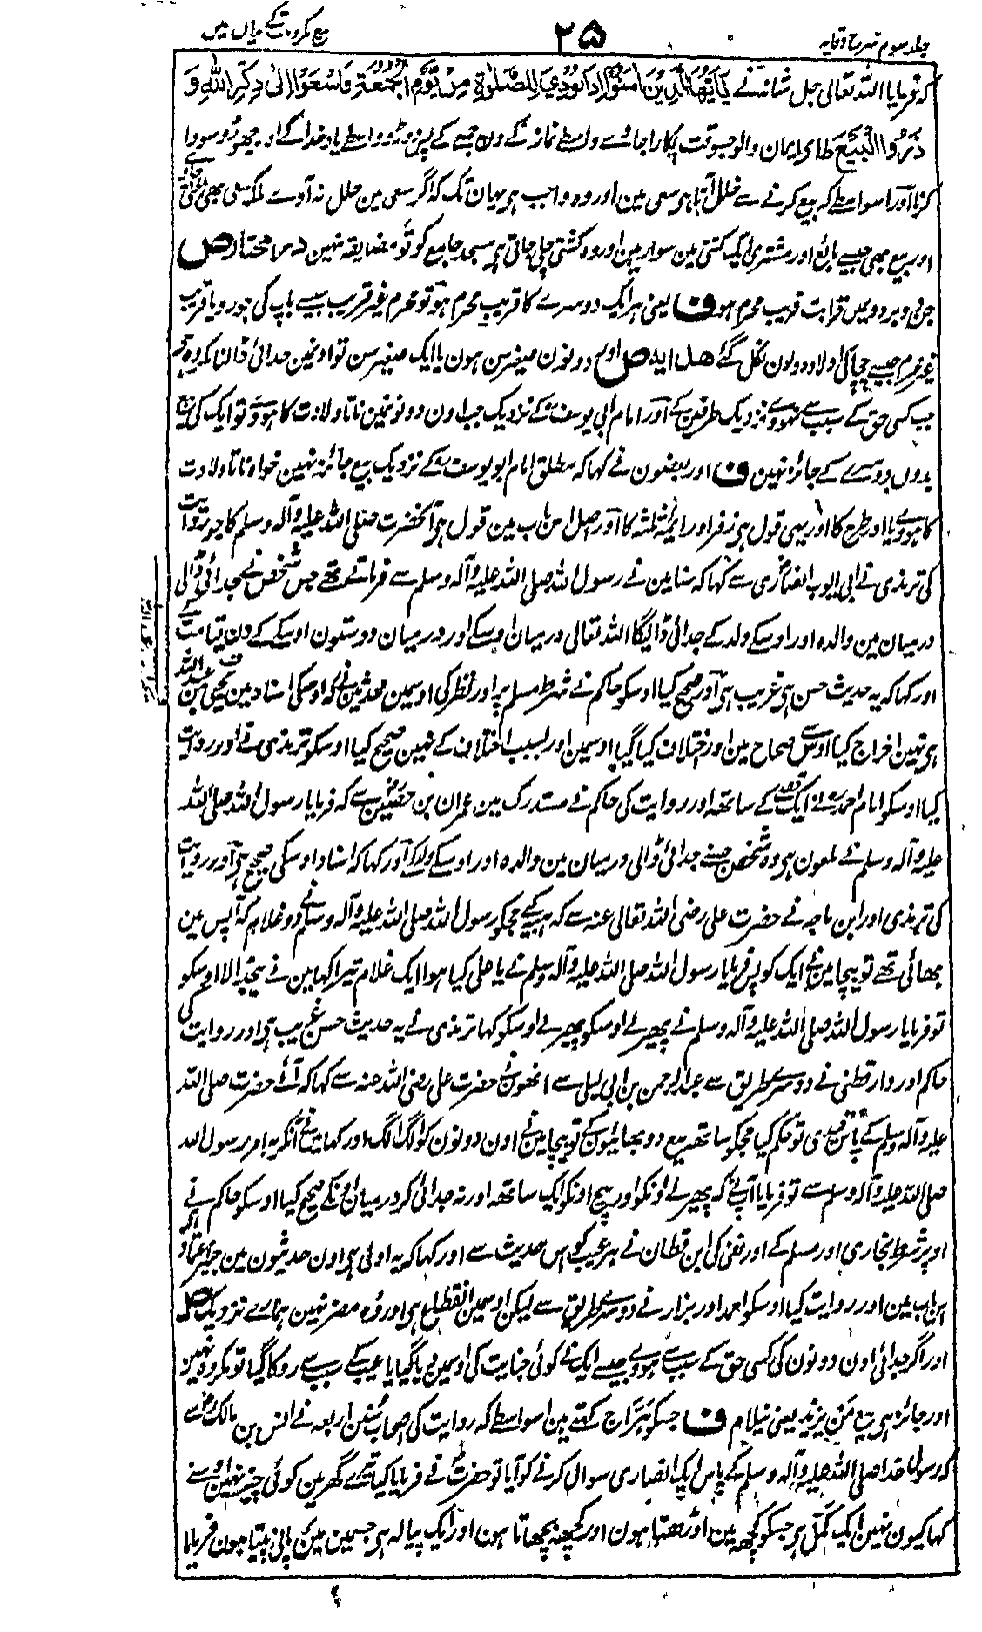 جلد سوم شرح وقایہ ۲۵ بیع مکروہ کے بیان میں
کہ فرمایا اللہ تعالی جل شانہ نے يَا أَيُّهَا الَّذِيْنَ اٰمَنُوْا اِذَا نُوْدِيَ لِلصَّلٰوةِ مِنْ يَّوْمِ الْجُمُعَةِ فَاسْعَوْا اِلٰى ذِكْرِ اللهِ وَ
ذَرُوا الْبَيْعَ ط ای ایمان والو جسوقت پکارا جائے واسطے نماز کے دن جمعے کے پس دوڑو واسطے یاد خدا کے اور چھوڑو سودا
کرنا اور اسواسطے کہ بیع کرنے سے خلل آتا ہی سعی مین اور وہ واجب ہی یہان تک کہ اگر سعی مین خلل نہ آوے بلکہ سعی بھی
اور بیع بھی جیسے بائع اور مشتری ایک کشتی مین سوار ہین اور وہ کشتی چلی جاتی ہی مسجد جامع کو تو مضایقہ نہین در مختار ص
جن دو بردوں مین قرابت قریب محرم ہو ف یعنی ہر ایک دوسرے کا قریب محرم ہو تو محرم غیر قریب جیسے باپ کی جورو یا قریب
غیر محرم جیسے چچا کی اولاد دونون نکل گئے هدايه ص اور دونون صغیر سن ہون یا ایک صغیر سن تو اونمین جدائی ڈالنا مکروہ ہی
جب کسی حق کے سبب سے نہووے نزدیک طرفین کے اور امام ابی یوسف کے نزدیک جب اون دونونمین ناتا ولادت کا ہووے تو ایک کی بیع
بدون دوسرے کے جائز نہین ف اور بعضون نے کہا کہ مطلق امام ابو یوسف کے نزدیک بیع جائز نہین خواہ ناتا ولادت
کا ہووے یا اور طرح کا اور یہی قول ہی زفر اور ایمۂ ثلثہ کا اور اصل اس باب مین قول ہی آنحضرت صلی اللہ علیہ وآلہ وسلم کا جو روایت
کی ترمذی نے ابی ایوب انصاری سے کہا کہ سنا مین نے رسول اللہ صلی اللہ علیہ وآلہ وسلم سے فرماتے تھے جس شخص نے جدائی ڈالی
درمیان مین والدہ اور اوسکے ولد کے جدائی ڈالیگا اللہ تعالی درمیان اوسکے اور درمیان دوستون اوسکے کے دن قیامت کے
اور کہا کہ یہ حدیث حسن ہی غریب ہی اور صحیح کیا اوسکو حاکم نے شرط مسلم پر اور نظر کی اوسمین محدثین نے کہ اوسکی اسناد مین حُیَی بن عبد اللہ
ہی نہین اخراج کیا اوس سے صحاح مین اور اختلاف کیا گیا اوسمین اور بسبب اختلاف کے نہین صحیح کیا اوسکو ترمذی نے اور روایت
کیا اوسکو امام احمد نے ایک قصے کے ساتھ اور روایت کی حاکم نے مستدرک مین عمران بن حصین سے کہ فرمایا رسول اللہ صلی اللہ
علیہ وآلہ وسلم نے ملعون ہی وہ شخص جسنے جدائی ڈالی درمیان مین والدہ اور اوسکے ولد کے اور کہا کہ اسناد اوسکی صحیح ہی اور روایت
کی ترمذی اور ابن ماجہ نے حضرت علی رضی اللہ تعالی عنہ سے کہ ہبہ کیے مجکو رسول اللہ صلی اللہ علیہ وآلہ وسلم نے دو غلام کہ آپس مین
بھائی تھے تو بیچا مین نے ایک کو پس فرمایا رسول اللہ صلی اللہ علیہ وآلہ وسلم نے یا علی کیا ہوا ایک غلام تیرا کہا مین نے بیچ ڈالا اوسکو
تو فرمایا رسول اللہ صلی اللہ علیہ وآلہ وسلم نے پھیر لے اوسکو پھیر لے اوسکو کہا ترمذی نے یہ حدیث حسن غریب ہی اور روایت کی
حاکم اور دار قطنی نے دوسرے طریق سے عبد الرحمن بن ابی لیلی سے انھون نے حضرت علی رضی اللہ عنہ سے کہا کہ آئے حضرت صلی اللہ
علیہ وآلہ وسلم کے پاس قیدی تو حکم کیا مجکو ساتھ بیع دو بھائیون کے تو بیچا مین نے اون دونون کو الگ الگ اور کہا یہ امر رسول اللہ
صلی اللہ علیہ وآلہ وسلم سے تو فرمایا آپ نے کہ پھیر لے اونکو اور بیچ اونکو ایک ساتھ اور نہ جدائی کر درمیان اونکے صحیح کیا اوسکو حاکم نے
اوپر شرط بخاری اور مسلم کے اور نفی کی ابن قطان نے ہر عیب کو اس حدیث سے اور کہا کہ یہ اولی ہی اون حدیثون مین جن پر اعتماد ہی
اس باب مین اور روایت کیا اوسکو احمد اور بزار نے دوسرے طریق سے لیکن اوسمین انقطاع ہی اور وہ مضر نہین ہمارے نزدیک ص
اور اگر جدائی اون دونون کی کسی حق کے سبب سے ہووے جیسے ایک نے کوئی جنایت کی اوسمین دیا گیا یا عیب کے سبب سے روکا گیا تو مکروہ نہین
اور جائز ہی بیع من یزید یعنی نیلام ف جسکو ہراج کہتے ہین اسواسطے کہ روایت کی اصحاب سنن اربعہ نے انس بن مالک سے
کہ رسول خدا صلی اللہ علیہ وآلہ وسلم کے پاس ایک انصاری سوال کرنے کو آیا تو حضرت نے فرمایا کیا تیرے گھر مین کوئی چیز نہین اوسنے
کہا کیون نہین ایک کمل ہی جسکو کچھ مین اوڑھتا ہون اور کچھ بچھاتا ہون اور ایک پیالہ ہی جسمین مین پانی پیتا ہون فرمایا